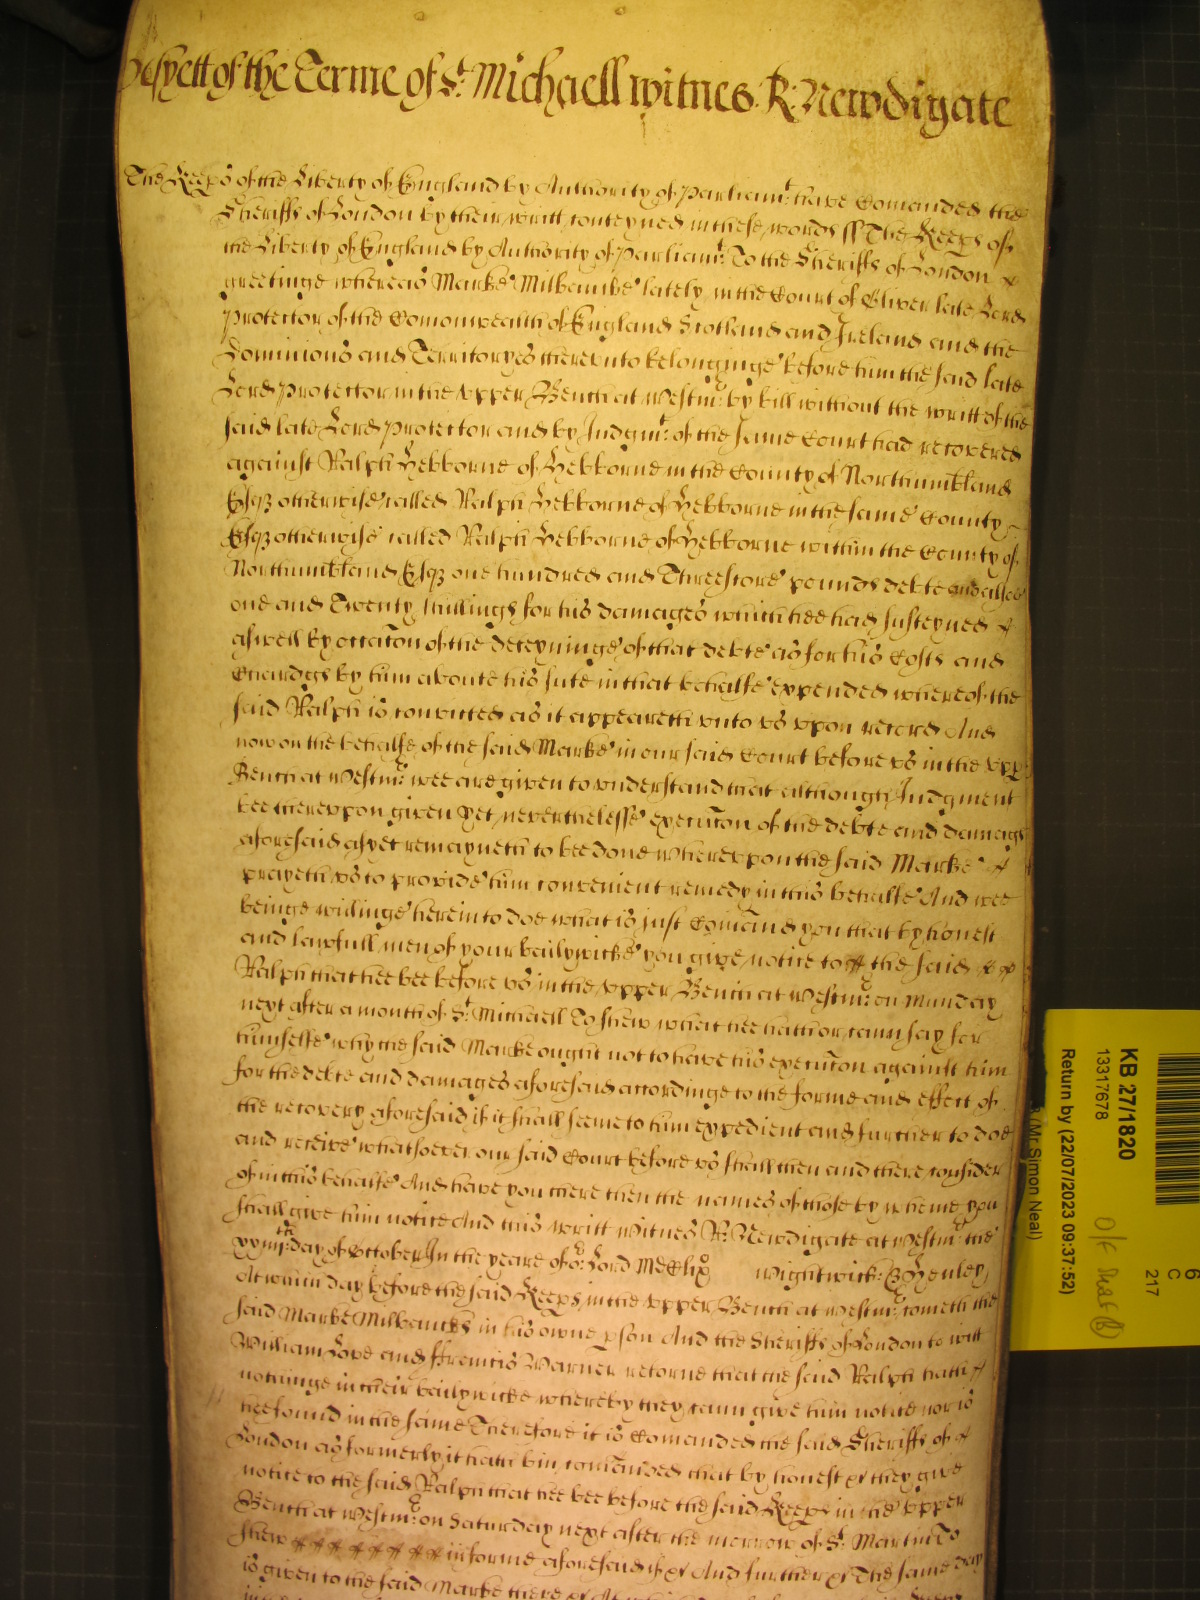 As yett of the Terme of St. Michaell witnes R: Newdigate
The Keeps of the Liberty of England by Authority of Parliamt: have Comanded the
Sheriffs of London by their writt conteyned in these words ss The Keeps of
the Liberty of England by Authority of Parliamt: To the Sheriffs of London
greetinge whereas Marke Milbanke lately in the Court of Oliver late Lord
Protector of the Comonwealth of England Scotland and Ireland and the
Dominions and Territoryes thereunto belonginge before him the said late
Lord Protector in the Upper Bench at Westmr: by bill without the writt of the
said late Lord Protector and by Judgmt: of the same Court had recovered
against Ralph Hebborne of Hebborne in the County of Northumbland
Esqr otherwise called Ralph Hebborne of Hebborne in the same County
Esqr otherwise called Ralph Hebborne of Hebborne within the County of
Northumbland Esqr one hundred and Threescore pounds debte and alsoe
one and Twenty shillings for his damages which hee had susteyned
aswell by occacon of the deteyninge of that debte as for his Costs and
Chardgs by him aboute his sute in that behalfe expended whereof the
said Ralph is convicted as it appeareth unto us upon record And
now on the behalfe of the said Marke in our said Court before us in the Upp
Bench at Westmr: wee are given to understand that although Judgment
bee thereupon given Yet neverthelesse execucon of the debte and damags
aforesaid as yet remayneth to bee done Whereupon the said Marke
prayeth us to provide him convenient remedy in this behalfe And wee
beinge willinge herein to doe what is just Comand you that by honest
and lawfull men of your bailywicke you give notice to the said
Ralph that hee bee before us in the Upper Bench at Westmr: on Munday
next after a month of St. Michaell To shew what hee hath or cann say for
himselfe why the said Marke ought not to have his execucon against him
for the debte and damages aforesaid accordinge to the forme and effect of
the recovery aforesaid if it shall seeme to him expedient and further to doe
and receive whatsoever our said Court before us shall then and there consider
of in this behalfe And have you there then the names of those by whome you
shall give him notice And this writt Witnes R: Newdigate at Westmr the
day of October In the yeare of or: Lord MDClixo Wightwick: & Henley
At which day before the said Keeps in the Upper Bench at Westmr: cometh the
said Marke Milbancke in his owne pson And the Sheriffs of London to witt
William Love and Francis Warner retorne that the said Ralph hath
nothinge in their bailywicke whereby they cann give him notice nor is
hee found in the same Therefore it is Comanded the said Sheriffs of
London as formerly it hath bin comanded that by honest &c they give
notice to the said Ralph that hee bee before the said Keeps in the Upper
Bench at Westmr: on Saturday next after the morrow of St. Martin To
shew in forme aforesaid if &c And further &c The same day
is given to the said Marke there &c At which
KB 27/1820
13317678
Return by (22/07/2023 09:37:52)
(Mr Simon Neal)
6
C
217